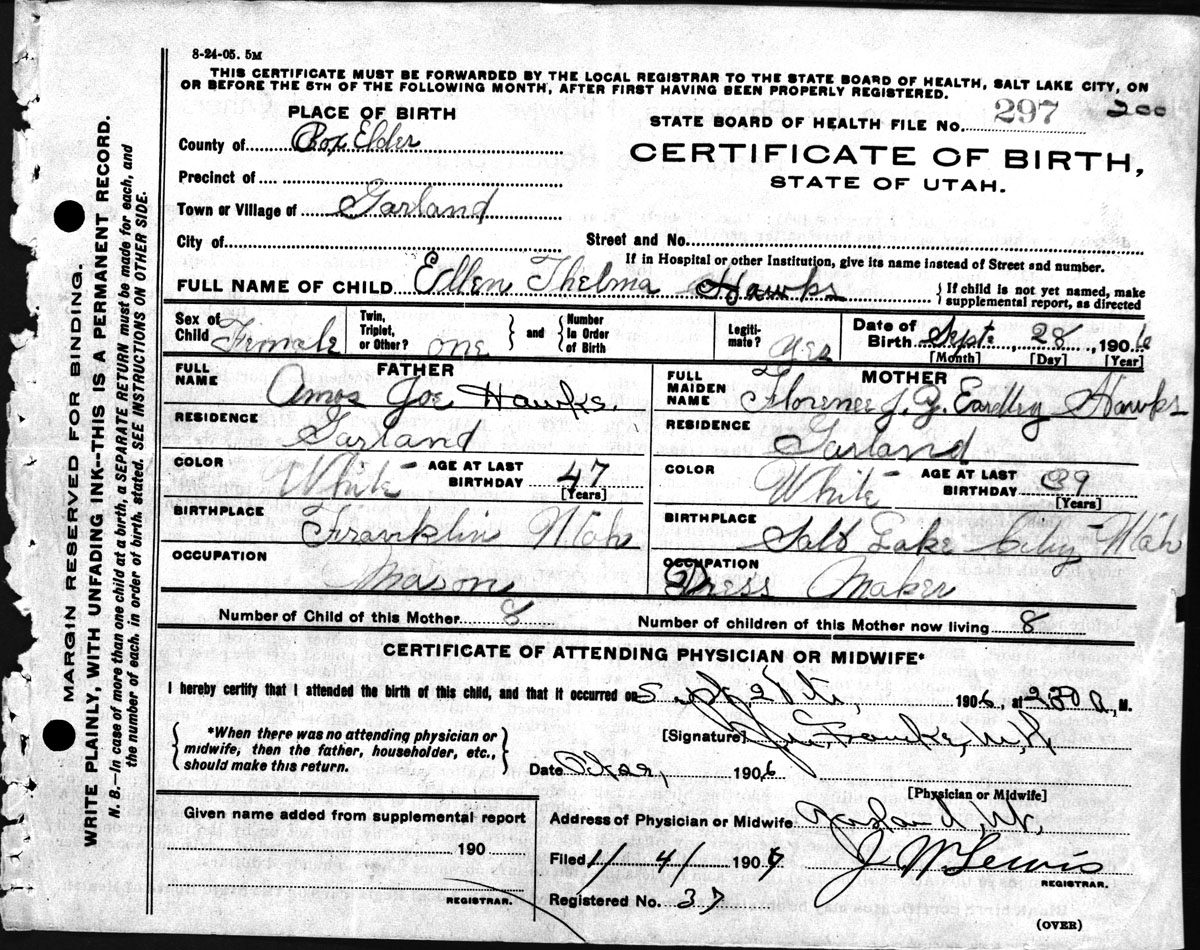 8-24-05. 5M
THIS CERTIFICATE MUST BE FORWARDED BY THE LOCAL REGISTRAR TO THE STATE BOARD OF HEALTH, SALT LAKE CITY, ON
OR BEFORE THE 5TH OF THE FOLLOWING MONTH, AFTER FIRST HAVING BEEN PROPERLY REGISTERED.
200
PLACE OF BIRTH
STATE BOARD OF HEALTH FILE No. 297
County of Box Elder
CERTIFICATE OF BIRTH,
STATE OF UTAH.
Precinct of
Town or Village of Garland
City of
Street and No.
If in Hospital or other Institution, give its name instead of Street and number.
FULL NAME OF CHILD Ellen Thelma Hawks
{If child is not yet named, make
supplemental report, as directed
Sex of Child Female
Twin, Triplet, or Other? one } and { Number in Order of Birth
Legiti-mate? yes
Date of Birth Sept. 28, 1906
[Month] [Day] [Year]
FATHER
FULL NAME Amos Joe Hawks.
RESIDENCE Garland
COLOR White
AGE AT LAST BIRTHDAY 47
[Years]
BIRTHPLACE Franklin Utah
OCCUPATION Mason
MOTHER
FULL MAIDEN NAME Florence J. Y. Eardley Hawks
RESIDENCE Garland
COLOR White
AGE AT LAST BIRTHDAY 39
[Years]
BIRTHPLACE Salt Lake City Utah
OCCUPATION Dress Maker
Number of Child of this Mother 8
Number of children of this Mother now living 8
CERTIFICATE OF ATTENDING PHYSICIAN OR MIDWIFE*
I hereby certify that I attended the birth of this child, and that it occurred on Sept 28th, 1906, at 230 A, M.
{ *When there was no attending physician or
midwife, then the father, householder, etc.,
should make this return. }
[Signature]
Date 1906
[Physician or Midwife]
Address of Physician or Midwife Garland, Ut.
Given name added from supplemental report
190
REGISTRAR.
Filed 1/4/ 1907
J W Lewis
REGISTRAR.
Registered No. 37
(OVER)
MARGIN RESERVED FOR BINDING.
WRITE PLAINLY, WITH UNFADING INK--THIS IS A PERMANENT RECORD.
N. B.—In case of more than one child at a birth, a SEPARATE RETURN must be made for each, and
the number of each, in order of birth, stated. SEE INSTRUCTIONS ON OTHER SIDE.